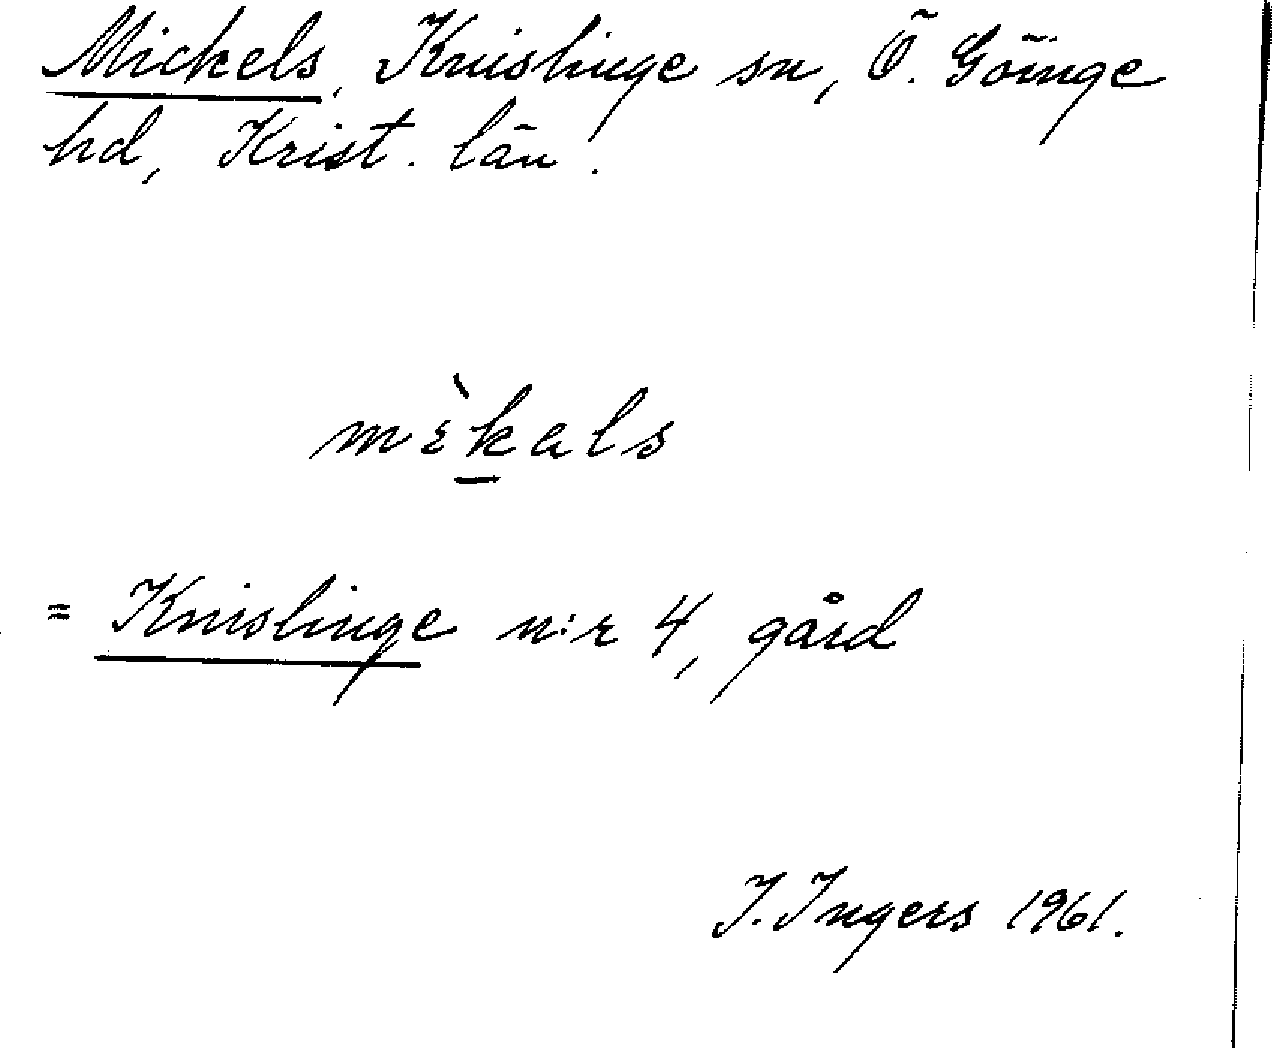 Mickels, Knislinge sn, Ö. Göinge
hd, Krist. län.
mɛ̀kals
= Knislinge n:r 4, gård
I. Ingers 1961.